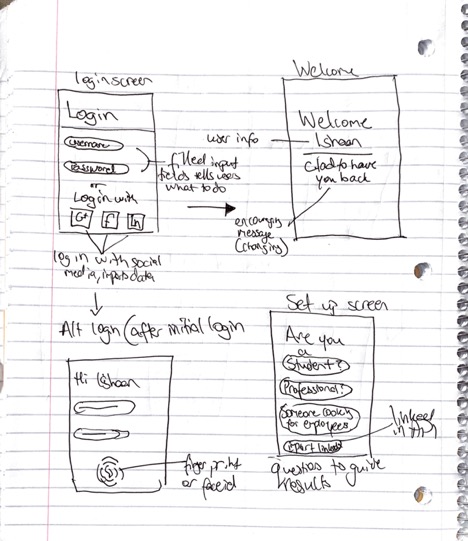 login screen
Login
username
password
or
Login with
G+ f in
filled input
fields tells users
what to do
log in with social
media, inputs data
Welcome
Welcome
Ishaan
Glad to have
you back
user info
encouraging
message
(changing)
Alt login (after initial login
Hi Ishaan
finger print
or faceid
Set up screen
Are you
a
Student?
Professional?
Someone looking
for employees
import linkedin
linked
in
questions to guide
results